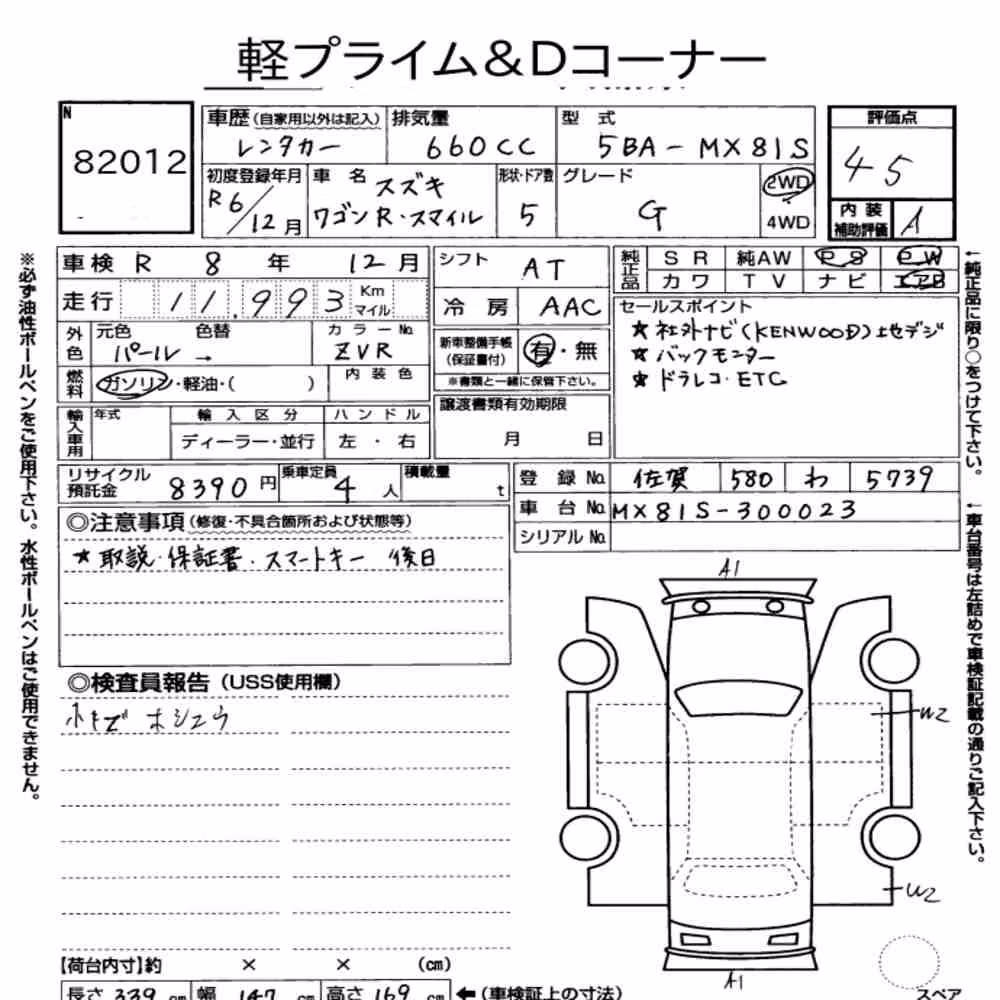 軽プライム&Dコーナー
N
82012
車歴 (自家用以外は記入) 排気量 型式 評価点
レンタカー 660CC 5BA-MX81S 45
初度登録年月 車名 形状・ドア数 グレード
R6/12月 スズキ ワゴンR・スマイル 5 G 2WD 4WD
内装補助評価 A
車検 R 8年 12月 シフト AT
純正品 SR 純AW PS PW
カワ TV ナビ エアB
走行 11,993 Km マイル 冷房 AAC
セールスポイント
★社外ナビ(KENWOOD)地デジ
★バックモニター
★ドラレコ・ETC
外色 元色 色替 カラーNo.
パール → ZVR
新車整備手帳(保証書付) 有・無
※書類と一緒に保管下さい。
燃料 ガソリン・軽油・( ) 内装色
譲渡書類有効期限
月 日
輸入車用 年式 輸入区分 ハンドル
ディーラー・並行 左・右
リサイクル預託金 8390円 乗車定員 4人 積載量 t
登録No. 佐賀 580 わ 5739
車台No. MX81S-300023
シリアルNo.
◎注意事項(修復・不具合箇所および状態等)
★取説・保証書・スマートキー 後日
◎検査員報告(USS使用欄)
小キズ ホシュウ
A1
W2
W2
A1
【荷台内寸】約 × × (cm)
長さ 339 cm 幅 147 cm 高さ 169 cm ←(車検証上の寸法)
スペア
※必ず油性ボールペンをご使用下さい。水性ボールペンはご使用できません。
←純正品に限り○をつけて下さい。
←車台番号は左詰めで車検証記載の通りご記入下さい。